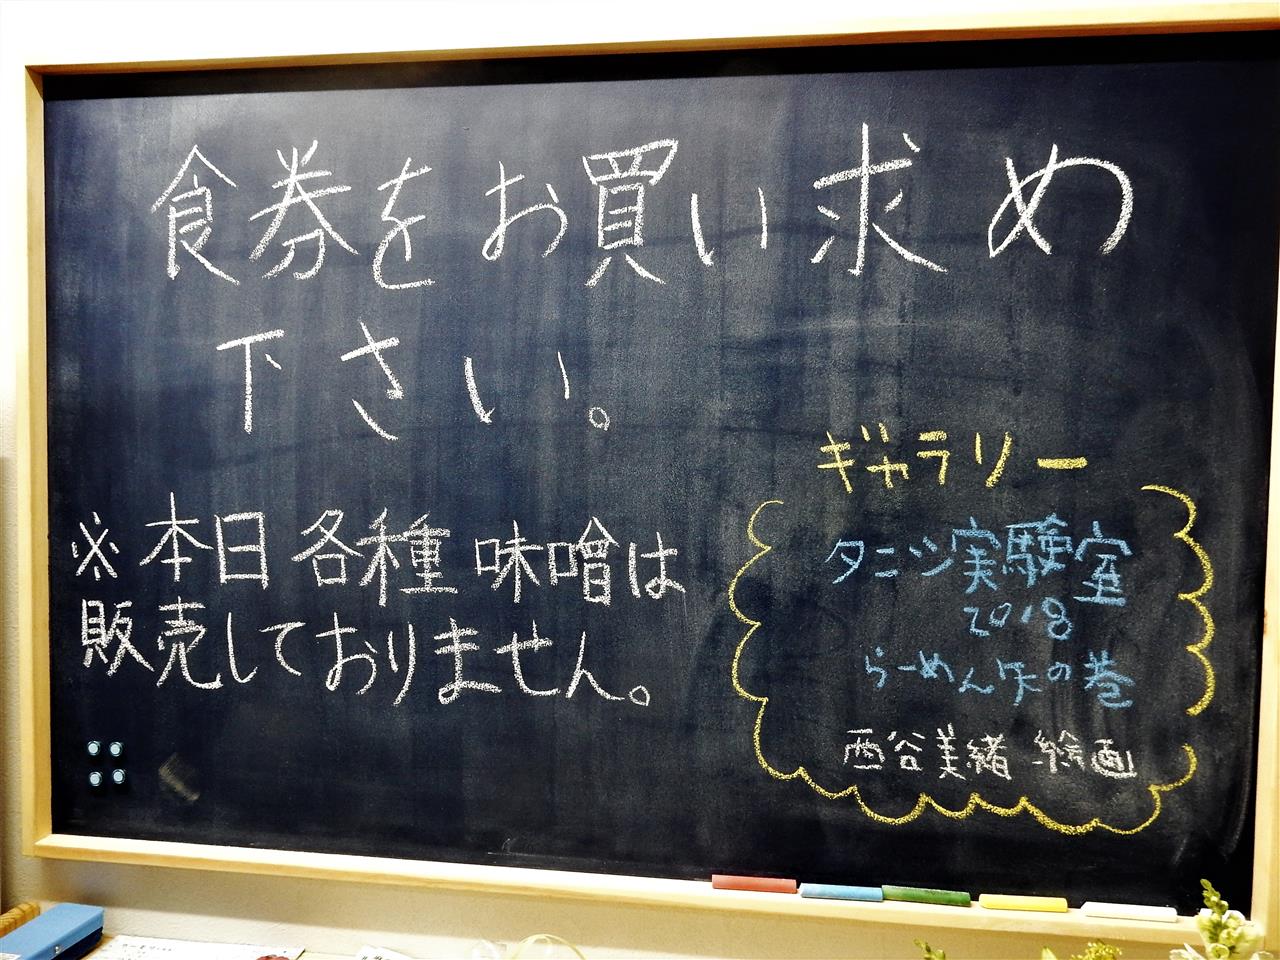 食券をお買い求め
下さい。
※本日各種味噌は
販売しておりません。
ギャラリー
タニツ実験室
2018
らーめん矢の巻
西谷美緒 絵画